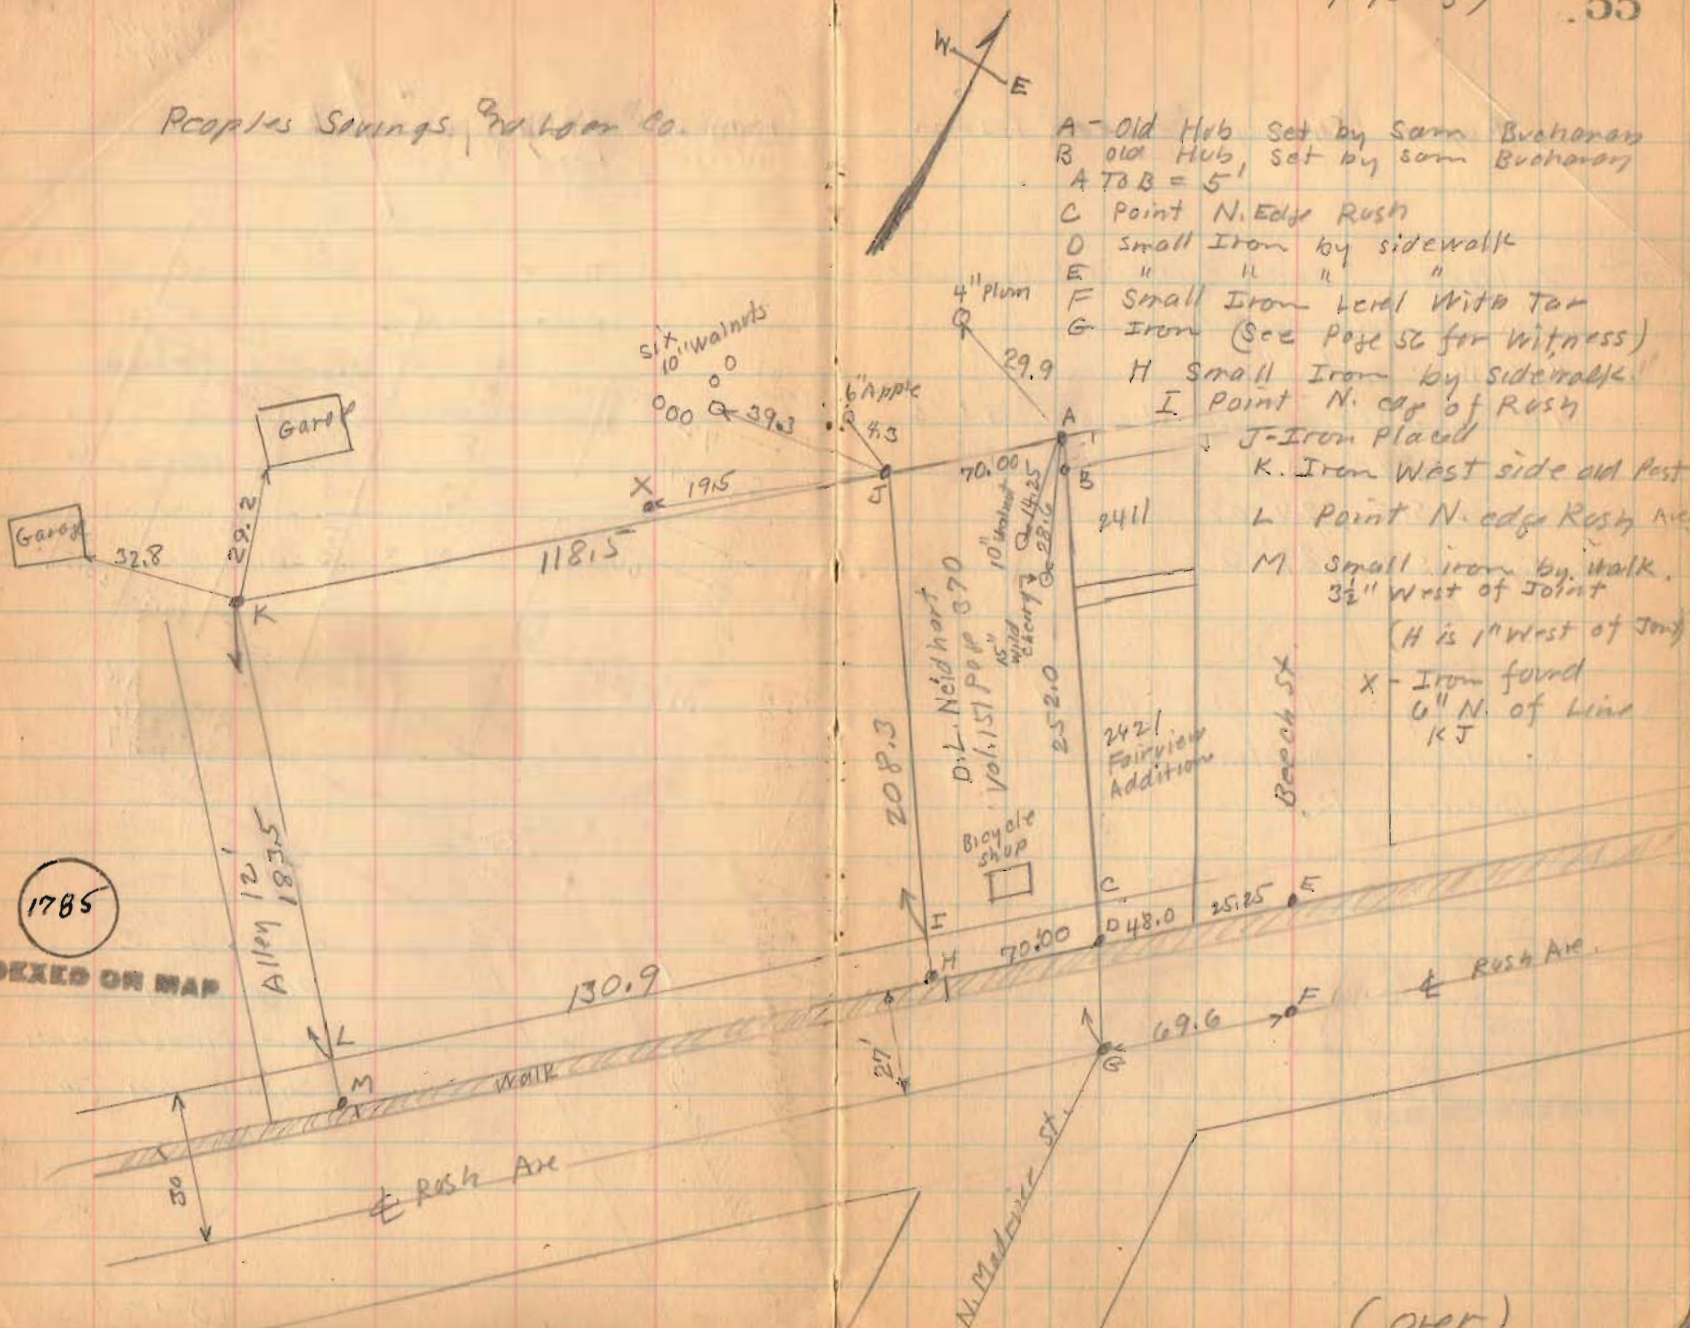 .55
Peoples Savings and Loan Co.
W
E
A - Old Hub Set by Sam Buchanan
B old Hub, Set by Sam Buchanan
A To B = 5'
C Point N. Edge Rush
D Small Iron by sidewalk
E " " " "
F Small Iron Level With Tar
G Iron (See Page 56 for Witness)
H Small Iron by sidewalk.
I Point N. edge of Rush
J-Iron Placed
K. Iron West side old Post
L Point N. edge Rush Ave
M Small iron by walk.
3½" West of Joint
(H is 1" West of Joint)
X - Iron found
6" N. of Line
KJ
4" Plum
29.9
six
10" walnuts
39.3
6" Apple
4.3
Garage
29.2
Garage
32.8
K
X
19.5
118.5
J
70.00
A
B
10" Walnut
14.25
28.6
15"
Wild
Cherry
2411
D.L. Neidhart
Vol. 151 Page 370
208.3
252.0
2421
Fairview
Addition
Beech St.
Bicycle
shop
1785
INDEXED ON MAP
Alley 12'
183.5
130.9
H
H
I
70.00
C
D
48.0
25.25
E
L
M
Walk
27'
69.6
F
G
℄ Rush Ave.
50
℄ Rush Ave
N. Madriver St.
(over)